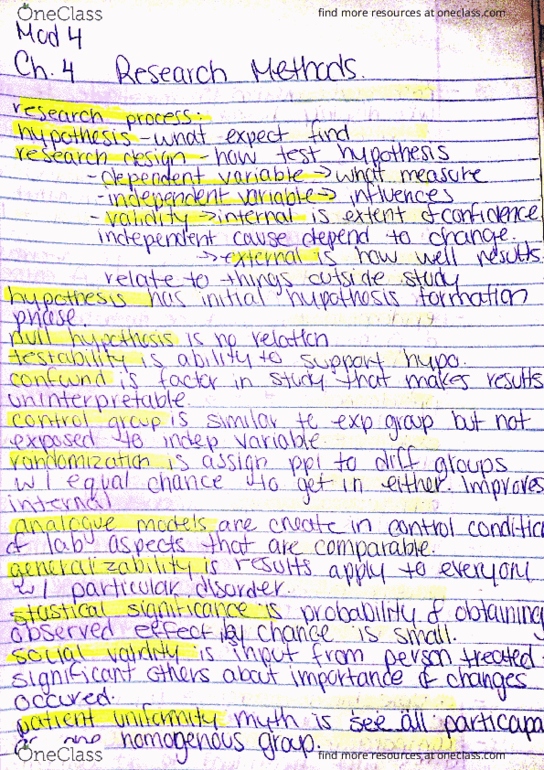 OneClass find more resources at oneclass.com
Mod 4
Ch. 4 Research Methods.
research process:
hypothesis - what expect find
research design - how test hypothesis
- dependent variable → what measure
- independent variable → influences
- validity → internal is extent of confidence
independent cause depend to change.
→ external is how well results
relate to things outside study
hypothesis has initial hypothesis formation
phase.
null hypothesis is no relation
testability is ability to support hypo.
confound is factor in study that makes results
uninterpretable
control group is similar to exp group but not
exposed to indep variable.
randomization is assign ppl to diff groups
w/ equal chance to get in either. Improves
internal
analogue models are create in control conditio
of lab aspects that are comparable.
generalizability is results apply to everyone
w/ particular disorder.
stastical significance is probability of obtaining
observed effect by chance is small.
social validity is input from person treated
significant others about importance of changes
occured.
patient uniformity myth is see all participa
homogenous group.
OneClass find more resources at oneclass.com